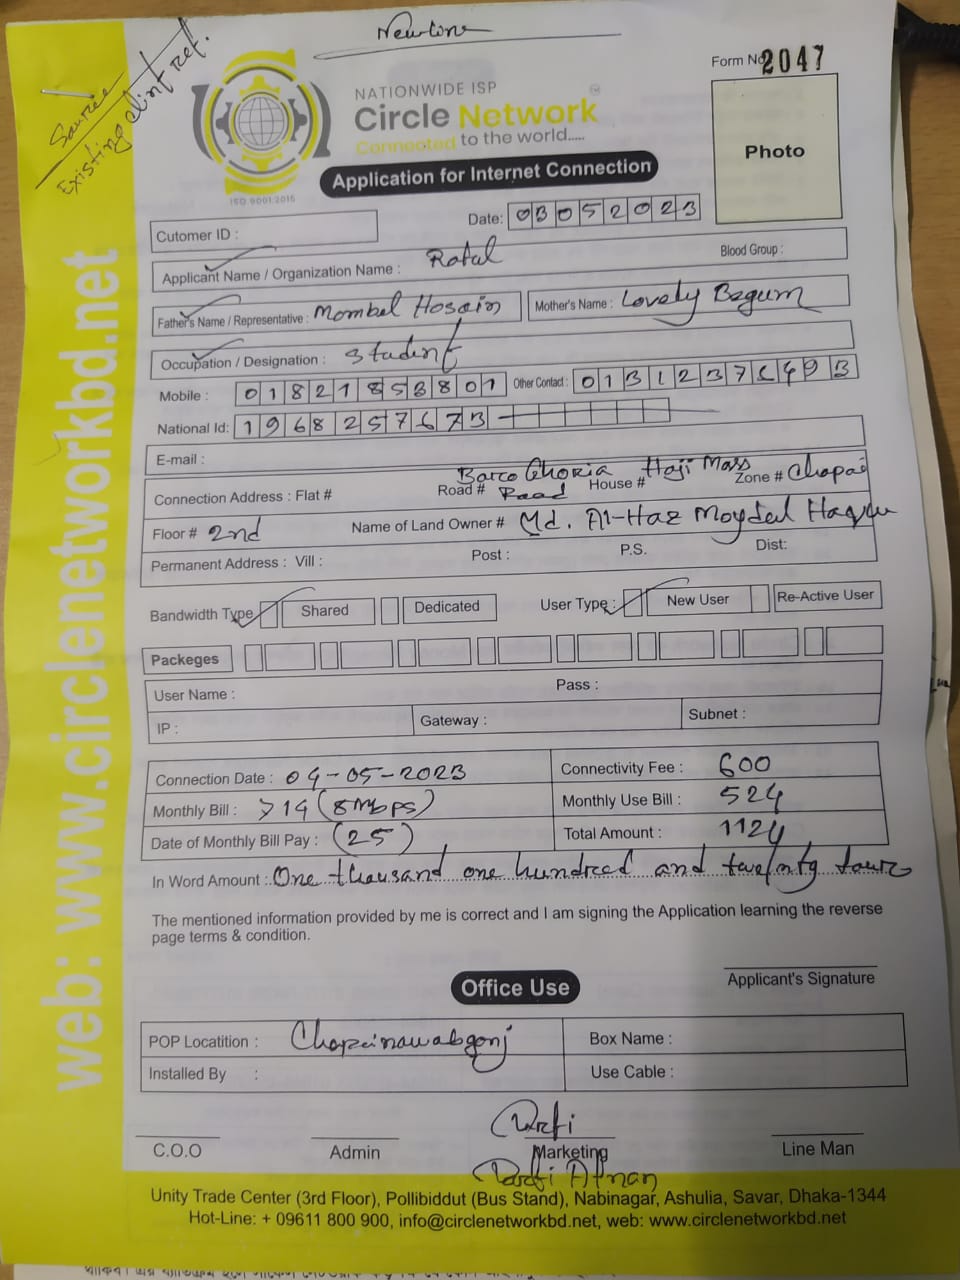 Newline
Source
Existing clint ref.
Form No 2047
NATIONWIDE ISP
Circle Network
Connected to the world.....
ISO 9001:2015
Application for Internet Connection
Photo
Date: 03052023
Cutomer ID :
Applicant Name / Organization Name : Ratul
Blood Group :
Father's Name / Representative : Mombel Hosain
Mother's Name : Lovely Begum
Occupation / Designation : Student
Mobile : 01821853801
Other Contact : 013123769 93
National Id: 1968257673
E-mail :
Connection Address : Flat # Road # Barco Ghoria Road House # Haji Mass Zone # Chapai
Floor # 2nd Name of Land Owner # Md. Al-Haz Moydul Haque
Permanent Address : Vill : Post : P.S. Dist:
Bandwidth Type Shared Dedicated User Type : New User Re-Active User
Packeges
User Name : Pass :
IP : Gateway : Subnet :
Connection Date : 04-05-2023 Connectivity Fee : 600
Monthly Bill : 714 (8Mbps) Monthly Use Bill : 524
Date of Monthly Bill Pay : (25) Total Amount : 1124
In Word Amount : One thousand one hundred and twelnty four
The mentioned information provided by me is correct and I am signing the Application learning the reverse
page terms & condition.
Applicant's Signature
Office Use
POP Locatition : Chapainawabgonj Box Name :
Installed By : Use Cable :
C.O.O Admin Marketing Line Man
Unity Trade Center (3rd Floor), Pollibiddut (Bus Stand), Nabinagar, Ashulia, Savar, Dhaka-1344
Hot-Line: + 09611 800 900, info@circlenetworkbd.net, web: www.circlenetworkbd.net
web: www.circlenetworkbd.net